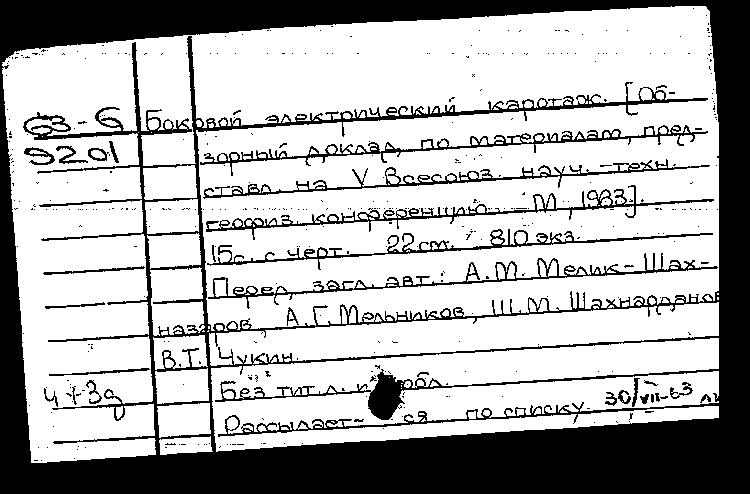 63-6 Боковой электрический каротаж. [Об-
9201 зорный доклад, по материалам, пред-
ставл. на V Всесоюз. науч.-техн.
геофиз. конференцию. М, 1963].
15с. с черт. 22см. 810 экз.
Перед загл. авт.: А.М. Мелик-Шах-
назаров, А.Г. Мельников, Ш.М. Шахнарданов
В.Т. Чукин.
4+3д Без тит. л. и обл.
Рассылает-ся по списку 30/VII-63